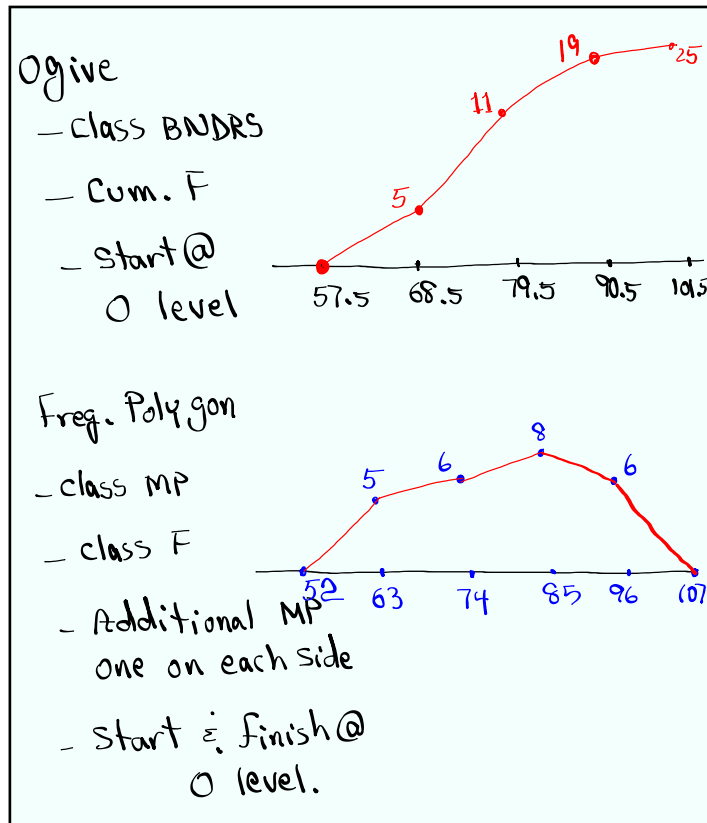 Ogive
- Class BNDRS
- Cum. F
- Start @
0 level
5
11
19
25
57.5 68.5 79.5 90.5 101.5
Freq. Polygon
- class MP
- class F
- Additional MP
one on each side
- Start & finish @
0 level.
5
6
8
6
52 63 74 85 96 107